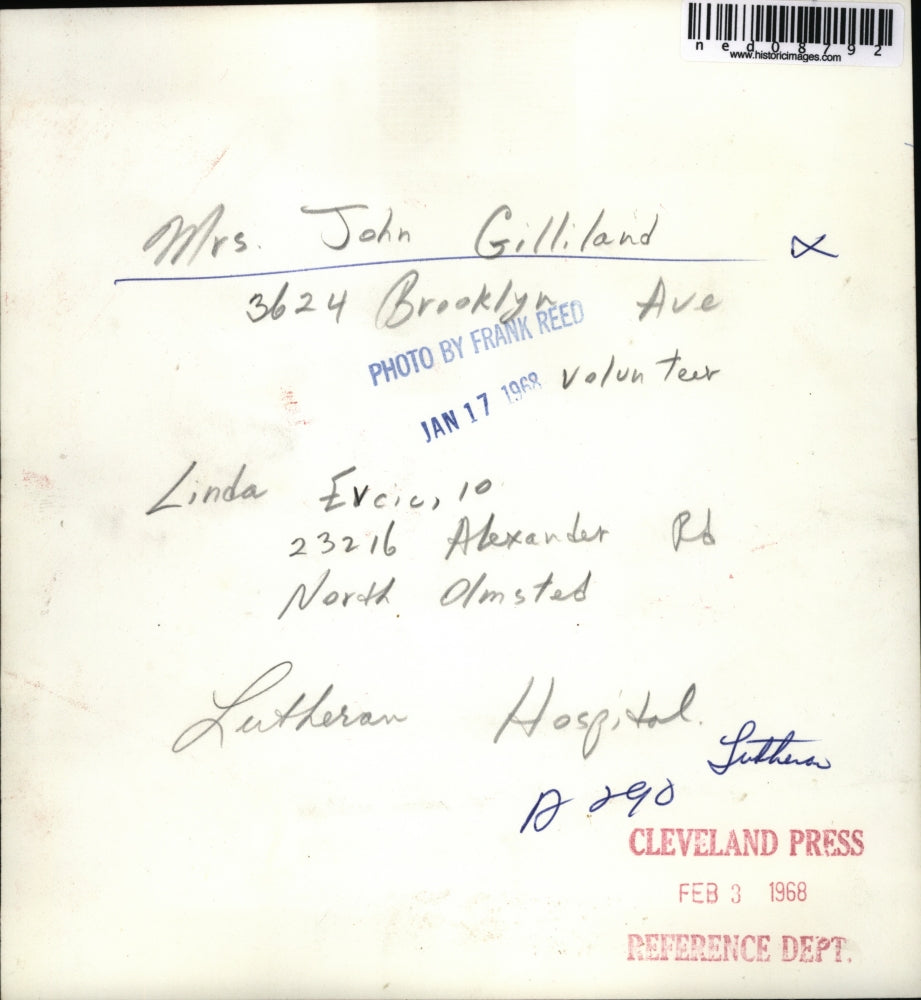 ned08792
www.historicimages.com
Mrs. John Gilliland
3624 Brooklyn Ave
PHOTO BY FRANK REED
volunteer
JAN 17 1968
Linda Evcic, 10
23216 Alexander Rd
North Olmsted
Lutheran Hospital.
Lutheran
A 290
CLEVELAND PRESS
FEB 3 1968
REFERENCE DEPT.